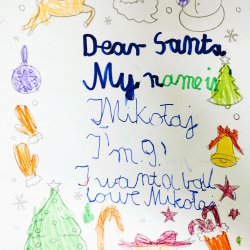 Dear Santa
My name is
Mikołaj
I'm 9!
I want a ball
Love Mikołaj